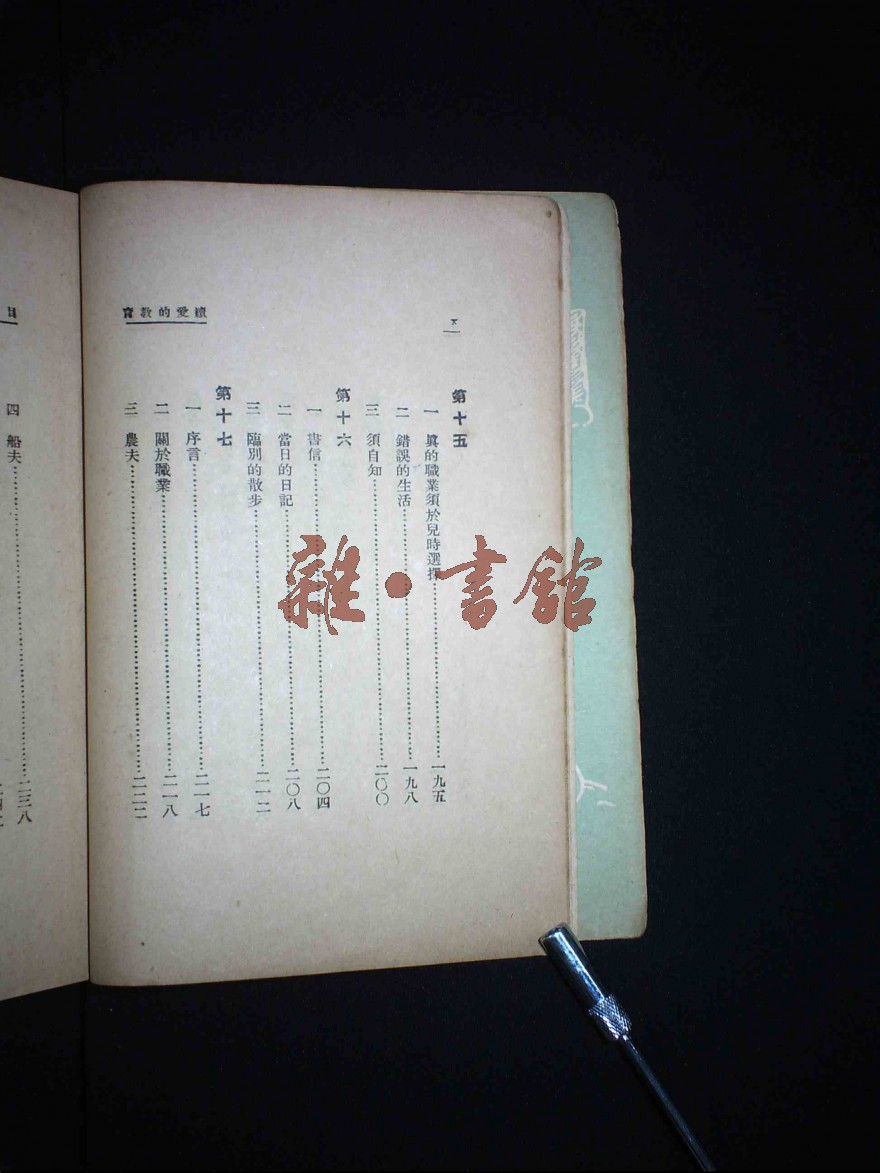 續愛的教育
第十五
一 眞的職業須於兒時選擇……一九五
二 錯誤的生活……一九八
三 須自知……二〇〇
第十六
一 書信……二〇四
二 當日的日記……二〇八
三 臨別的散步……二一二
第十七
一 序言……二一七
二 關於職業……二一八
三 農夫……二二二
目
四 船夫……二三八
雜·書館